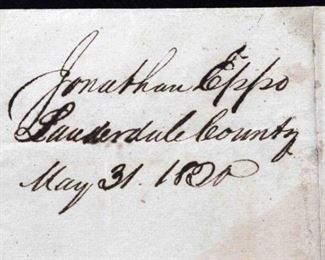 Jonathan Epps
Lauderdale County
May 31. 1820